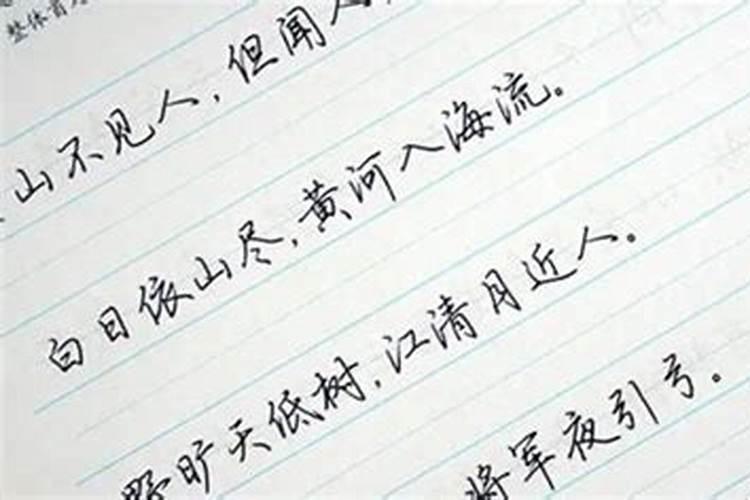 整体首
山不见人，但闻人
白日依山尽，黄河入海流。
野旷天低树，江清月近人。
将军夜引弓。